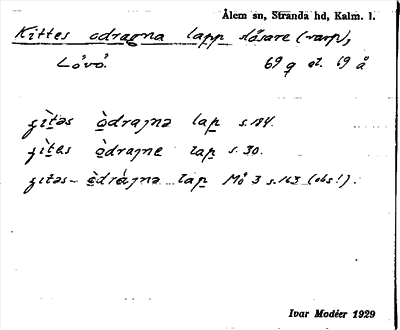 Ålem sn, Stranda hd, Kalm. l.
Kittes odragna lapp slåsare (varp),
Lövö. 69 q ol. 69 å
fìtəs òdrajnə lap s. 184.
fìtes òdrajne lap s. 30.
fitəs- òdrájnə lap Mö 3 s. 163 (obs!).
Ivar Modéer 1929